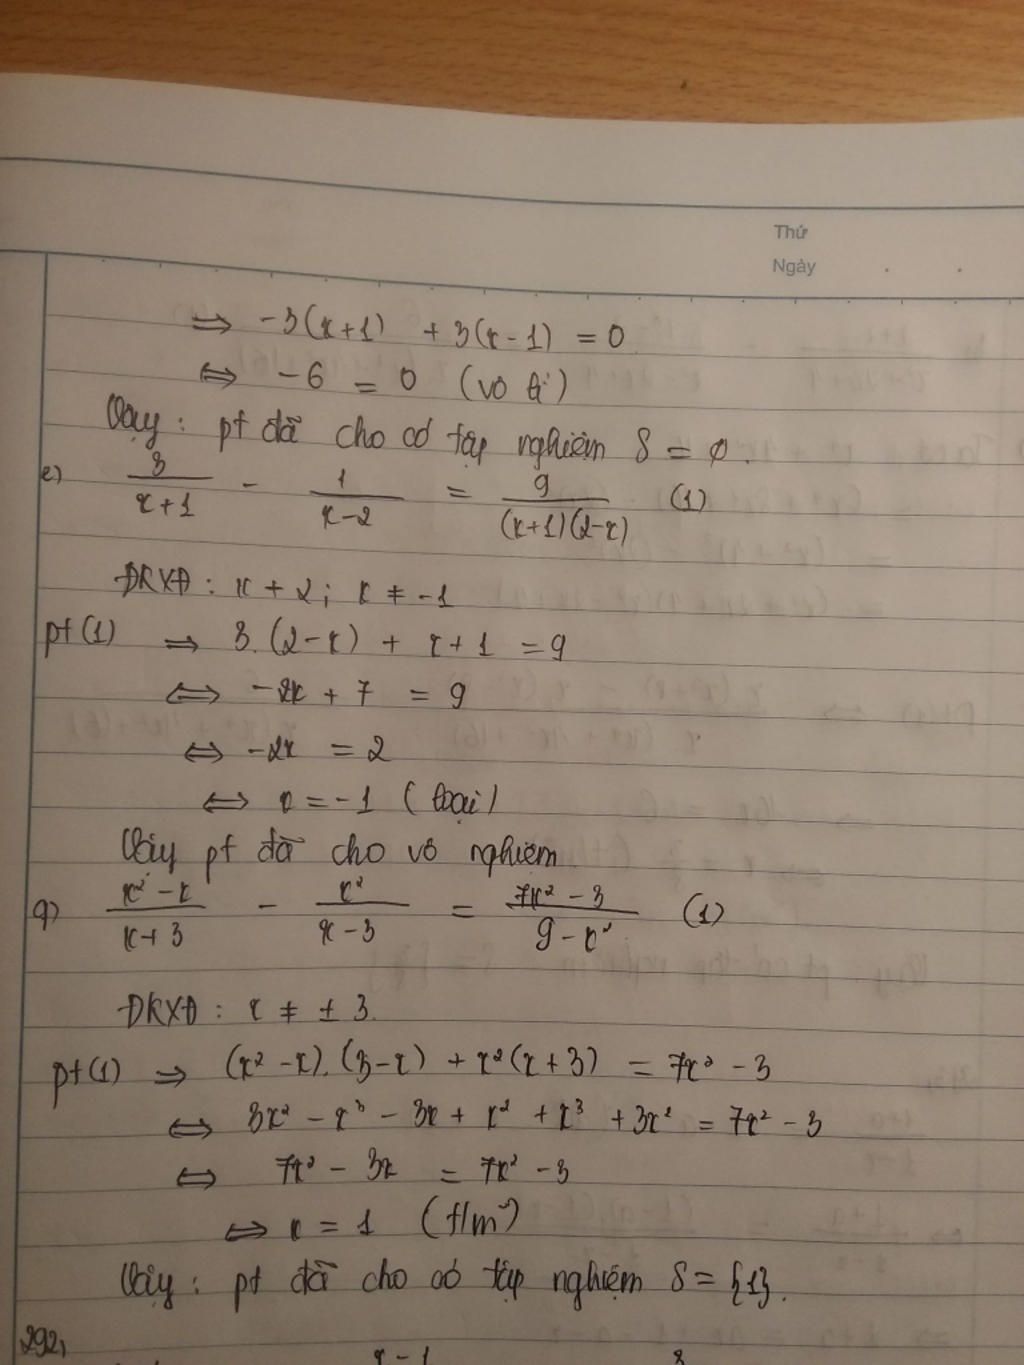 Thứ
Ngày
⇒ -3(x+1) + 3(x-1) = 0
⇔ -6 = 0 (vô lí)
Vậy: pt đã cho có tập nghiệm S = ∅.
e) 3/(x+1) - 1/(x-2) = 9/((x+1)(2-x)) (1)
ĐKXĐ: x ≠ 2; x ≠ -1
pt(1) ⇒ 3.(2-x) + x+1 = 9
⇔ -2x + 7 = 9
⇔ -2x = 2
⇔ x = -1 (loại)
Vậy pt đã cho vô nghiệm
g) (x²-x)/(x+3) - x²/(x-3) = (7x²-3)/(9-x²) (1)
ĐKXĐ: x ≠ ± 3.
pt(1) ⇒ (x²-x).(3-x) + x²(x+3) = 7x² - 3
⇔ 3x² - x³ - 3x + x² + x³ + 3x² = 7x² - 3
⇔ 7x² - 3x = 7x² - 3
⇔ x = 1 (t/m)
Vậy: pt đã cho có tập nghiệm S = {1}.
292,
x-1 8